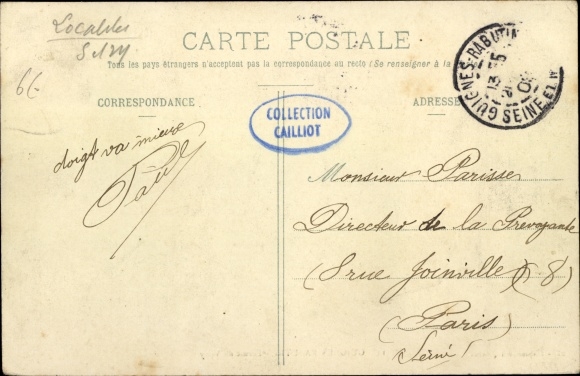 Localités
S et M
6€
CARTE POSTALE
Tous les pays étrangers n'acceptent pas la correspondance au recto (Se renseigner à la
CORRESPONDANCE
ADRESSE
COLLECTION
CAILLIOT
GUIGNES-RABUTIN
13-5
SEINE ET M
doigt va mieux
Monsieur Parisse
Directeur de la Prevoyante
(8 rue Joinville (8)
(Paris)